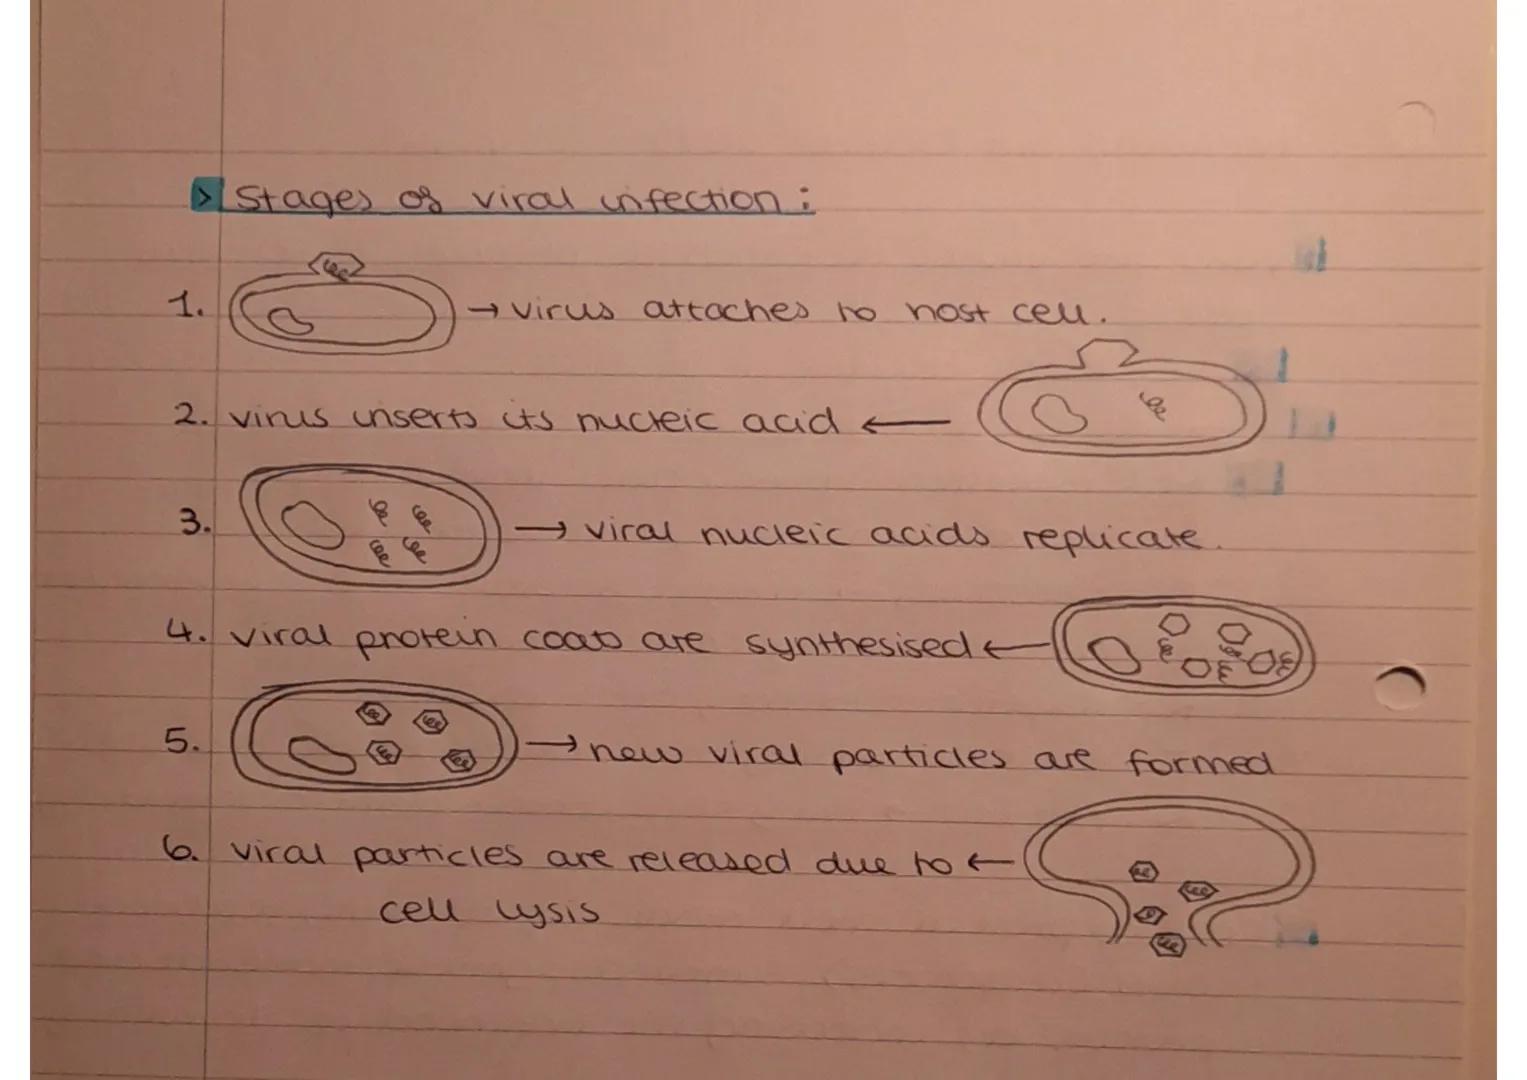 > Stages of viral infection :
1. → virus attaches to host cell.
2. virus inserts its nucleic acid ←
3. → viral nucleic acids replicate.
4. viral protein coats are synthesised ←
5. → new viral particles are formed
6. viral particles are released due to ←
cell lysis